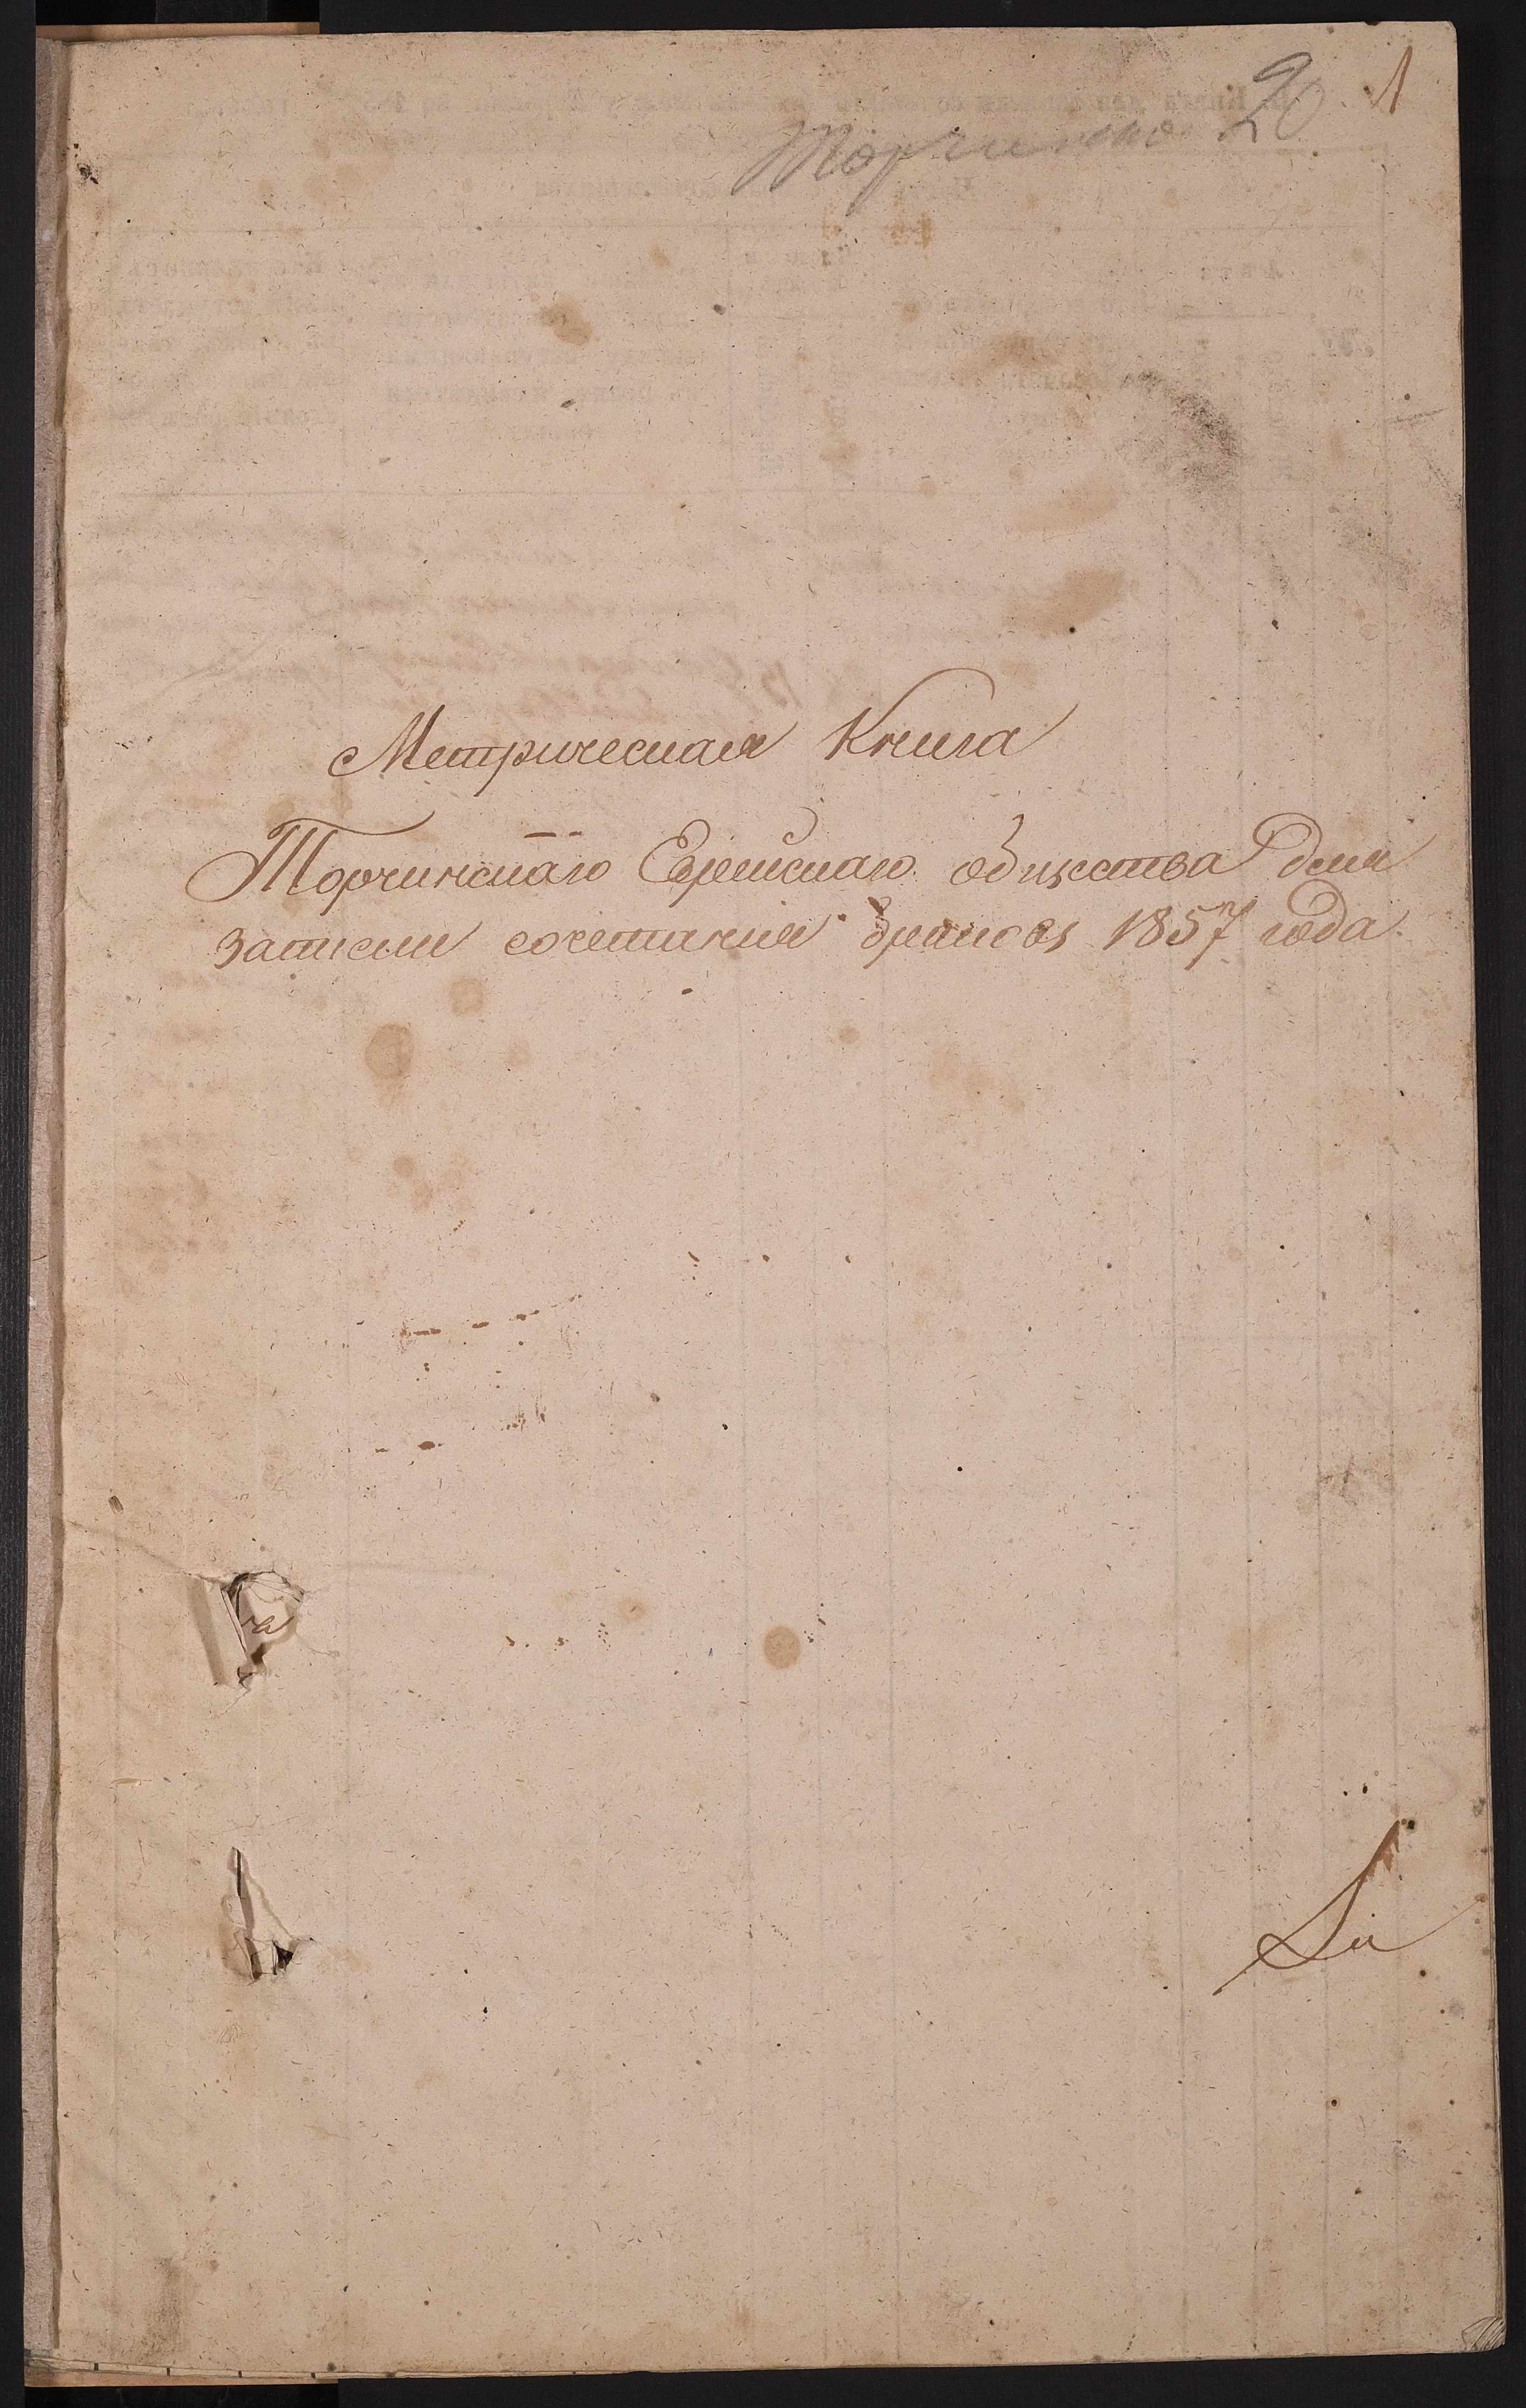 20 1
Метрическая Книга
Торчинскаго Еврейскаго общества для
записки сочетания браковъ 1857 года.